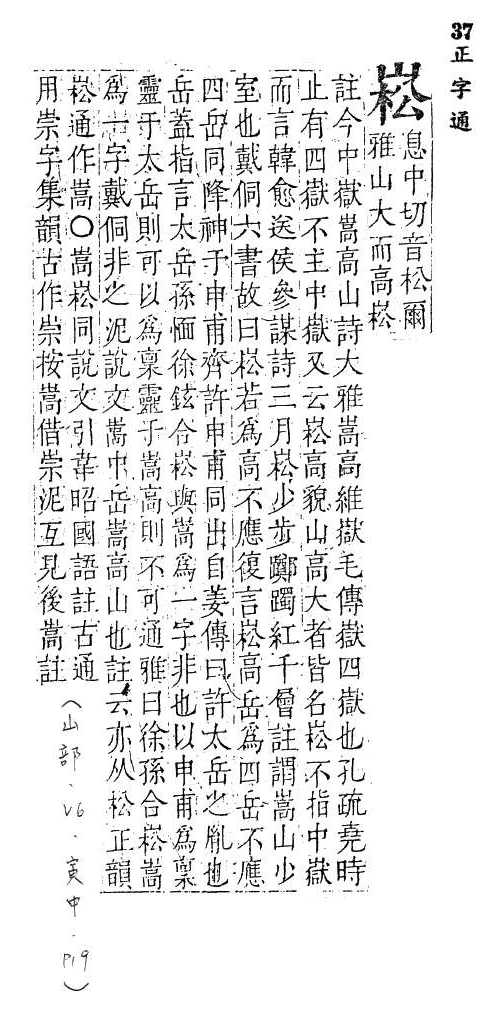 37正字通
崧
息中切音松爾
雅山大而高崧
註今中嶽嵩高山詩大雅嵩高維嶽毛傳嶽四嶽也孔疏堯時
止有四嶽不主中嶽又云崧高貌山高大者皆名崧不指中嶽
而言韓愈送侯參謀詩三月崧少步躑躅紅千層註謂嵩山少
室也戴侗六書故曰崧若爲高不應復言崧高岳爲四岳不應
四岳同降神于申甫齊許申甫同出自姜傳曰許太岳之胤也
岳蓋指言太岳孫愐徐鉉合崧與嵩爲一字非也以申甫爲稟
靈于太岳則可以爲稟靈于嵩高則不可通雅曰徐孫合崧嵩
爲一字戴侗非之泥說文嵩中岳嵩高山也註云亦从松正韻
崧通作嵩〇嵩崧同說文引韋昭國語註古通
用崇字集韻古作崇按嵩借崇泥互見後嵩註
(山部.V6.寅中.P19)